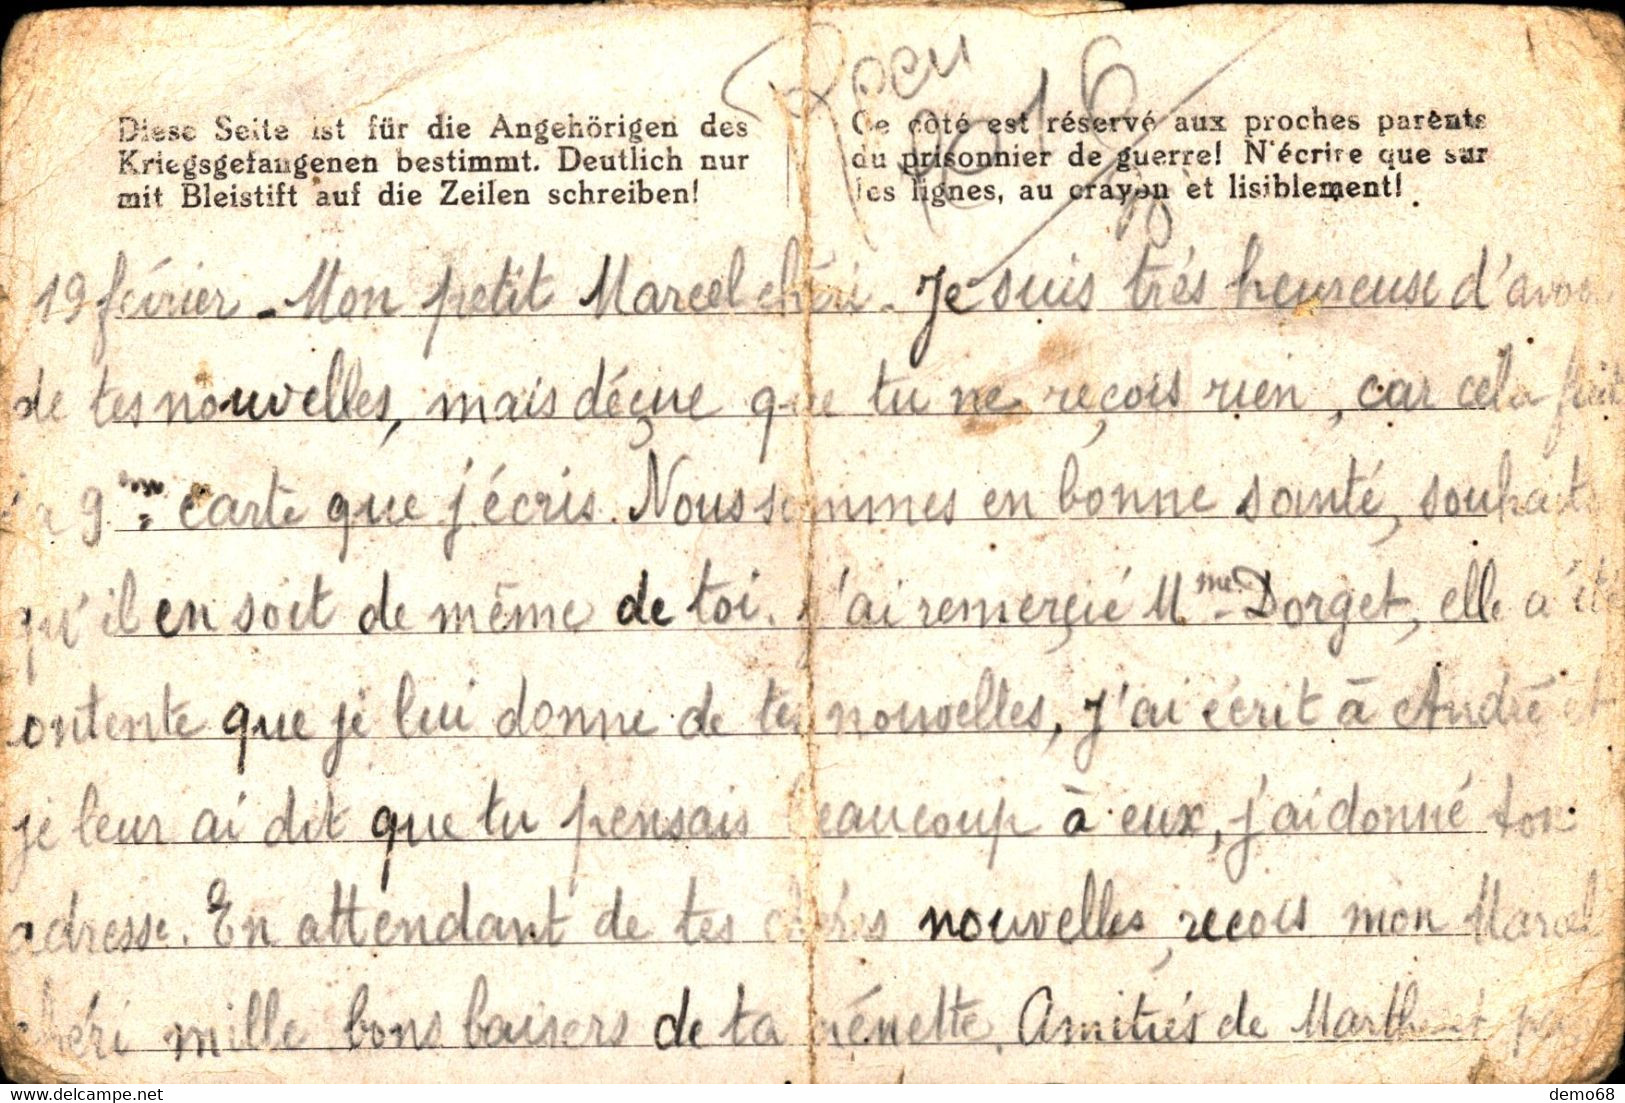 Diese Seite ist für die Angehörigen des
Kriegsgefangenen bestimmt. Deutlich nur
mit Bleistift auf die Zeilen schreiben!
Ce côté est réservé aux proches parents
du prisonnier de guerre! N'écrire que sur
les lignes, au crayon et lisiblement!
19 février - Mon petit Marcel chéri - Je suis très heureuse d'avoir
de tes nouvelles, mais déçue que tu ne reçois rien, car cela fait
la 9me carte que j'écris. Nous sommes en bonne santé, souhaite
qu'il en soit de même de toi. J'ai remerçié Mme Dorget, elle a été
contente que je lui donne de tes nouvelles, J'ai écrit à André et
je leur ai dit que tu pensais beaucoup à eux, j'ai donné ton
adresse. En attendant de tes chères nouvelles, reçois mon Marcel
chéri mille bons baisers de ta Amitiés de Marthe et
demo68